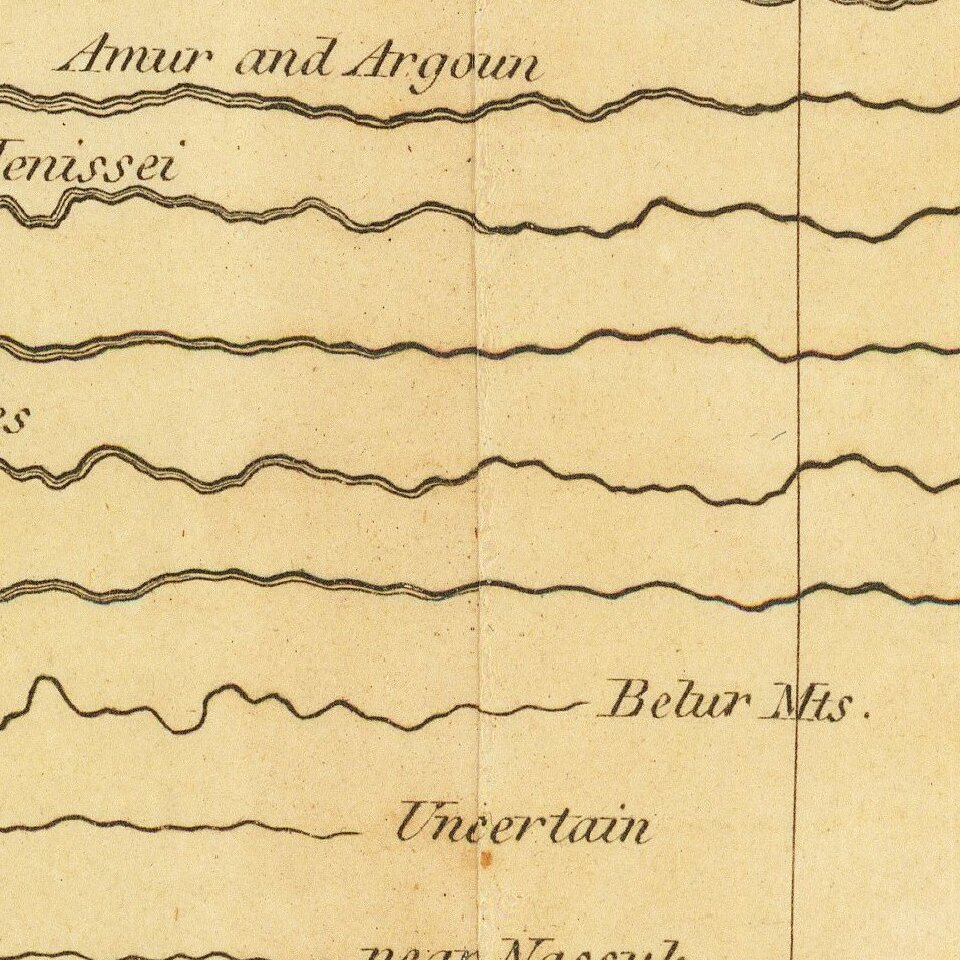 Amur and Argoun
Jenissei
es
Belur Mts.
Uncertain
near